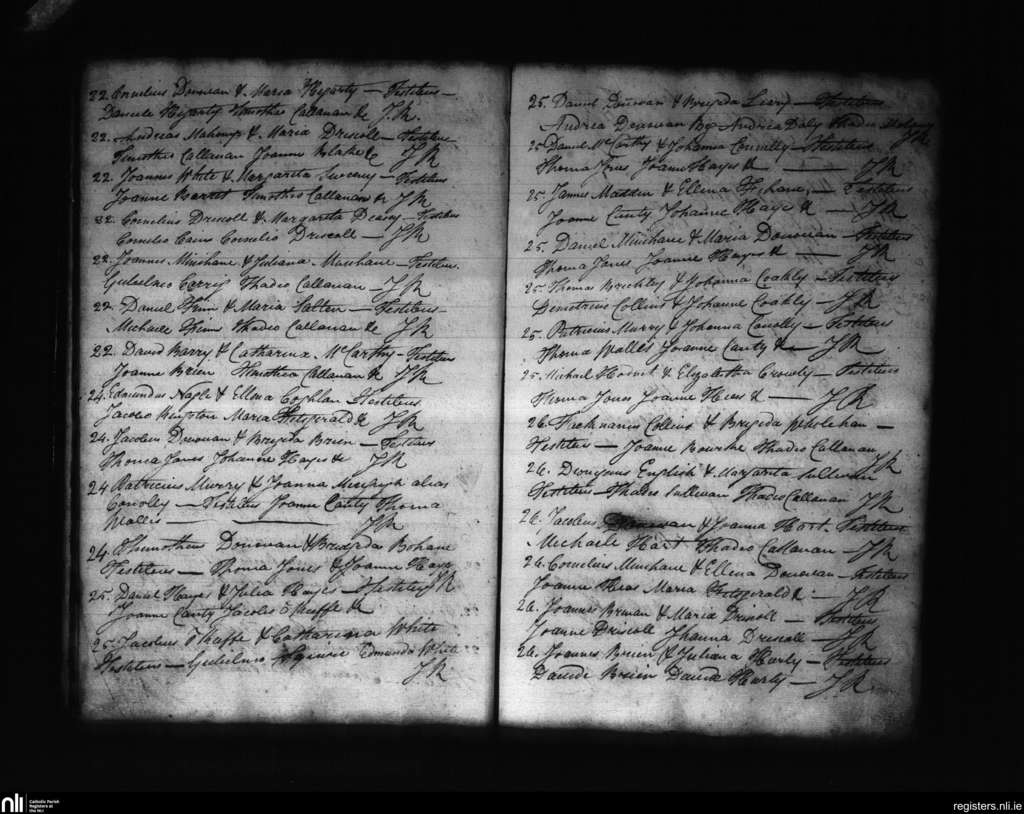 22. Cornelius Donovan & Maria Hegarty — Testibus —
Daniele Hegarty Timothio Callanan &c J.R.
22. Andreas Mahony & Maria Driscoll — Testibus
Timothio Callanan Joanne Blake &c J R
22. Joannes White & Margarita Sweeny — Testibus
Joanne Barret Timothio Callanan &c J R
22. Cornelius Driscoll & Margarita Deasy — Testibus
Cornelio Cain Cornelio Driscoll — J R
22. Joannes Minihane & Juliana Minihane — Testibus
Gulielmo Thadeo Callanan — J R
22. Daniel Finn & Maria — Testibus
Michaele Finn Thadeo Callanan &c J R
22. David Barry & Catharina McCarthy — Testibus
Joanne Brien Timothio Callanan &c J R
24. Edmundus Nagle & Ellena Coghlan Testibus
Jacobo Maria Fitzgerald &c J R
24. Jacobus Donovan & Brigida Brien — Testibus
Thoma Jones Johanne Hayes &c J R
24 Patricius Murry & Joanna Murphy alias
Conolly — Testibus Joanne Canty Thoma
Wallis — J R
24. Donovan & Bridgida Bohane
Testibus — Thoma Jones & Joanne Haye
25. Daniel Hayes & Julia Hayes — Testibus J R
Joanne Canty Jacobo O Keeffe &c
25. Jacobus O Keeffe & Catharina White
Testibus — Gulielmo Edmundo White
J R
25. Daniel Donovan & Brigida Leary — Testibus
Andrea Donovan Andrea Daly Thadeo J R
25 Daniel McCarthy & Johanna Connolly — Testibus
Thoma Jones Joanne Hayes &c — J R
25. James Madden & Ellena — Testibus
Joanne Canty Johanne Haye &c — J R
25. Daniel Minihane & Maria Donovan — Testibus
Thoma Jones Joanne Hayes &c — J R
25. Thomas & Johanna Coakly — Testibus
Demetrius Collins & Johanne Coakly — J R
25. Patricius Murry & Johanna Conolly — Testibus
Thoma Wallis Joanne Canty &c — J R
25. Michael Hodnit & Elizabetha Crowly — Testibus
Thoma Jones Joanne Heas &c — J R
26. Collins & Brigida Wholehan —
Testibus — Joanne Bourke Thadeo Callanan
J R
26. Dionysius English & Margarita Sullivan
Testibus — Thadeo Sullivan Thadeo Callanan J R
26. Jacobus Donovan & Joanna Hart Testibus
Michaele Hart Thadeo Callanan — J R
26. Cornelius Minihane & Ellena Donovan — Testibus
Joanne Heas Maria Fitzgerald &c — J R
26. Joannes & Maria Driscoll — Testibus
Joanne Driscoll Johanna Driscoll — J R
26. Joannes Brien & Juliana Harly — Testibus
Davide Brien Davide Harly — J R.
nli
Catholic Parish
Registers at
the NLI
registers.nli.ie